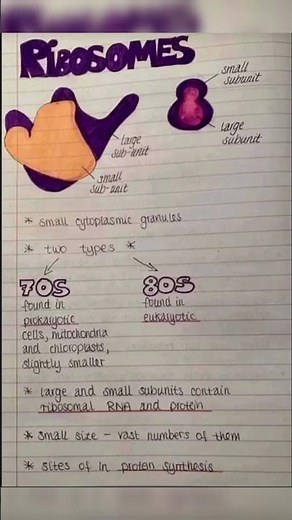 RIBOSOMES
small
subunit
large
subunit
large
sub-unit
small
sub-unit
* small cytoplasmic granules
* two types *
70S
found in
prokaryotic
cells, mitochondria
and chloroplasts,
slightly smaller
80S
found in
eukaryotic
* large and small subunits contain
ribosomal RNA and protein
* small size - vast numbers of them
* sites of in protein synthesis